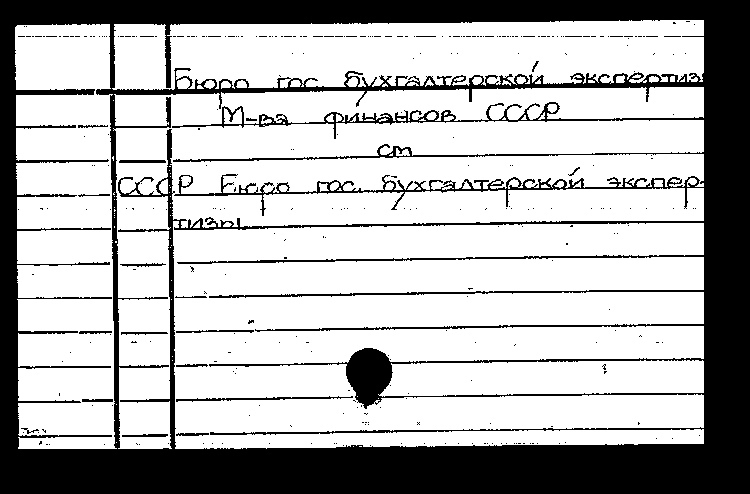 Бюро гос. бухгалтерской экспертиз
М-ва финансов СССР
см
СССР Бюро гос. бухгалтерской экспер-
тизы.